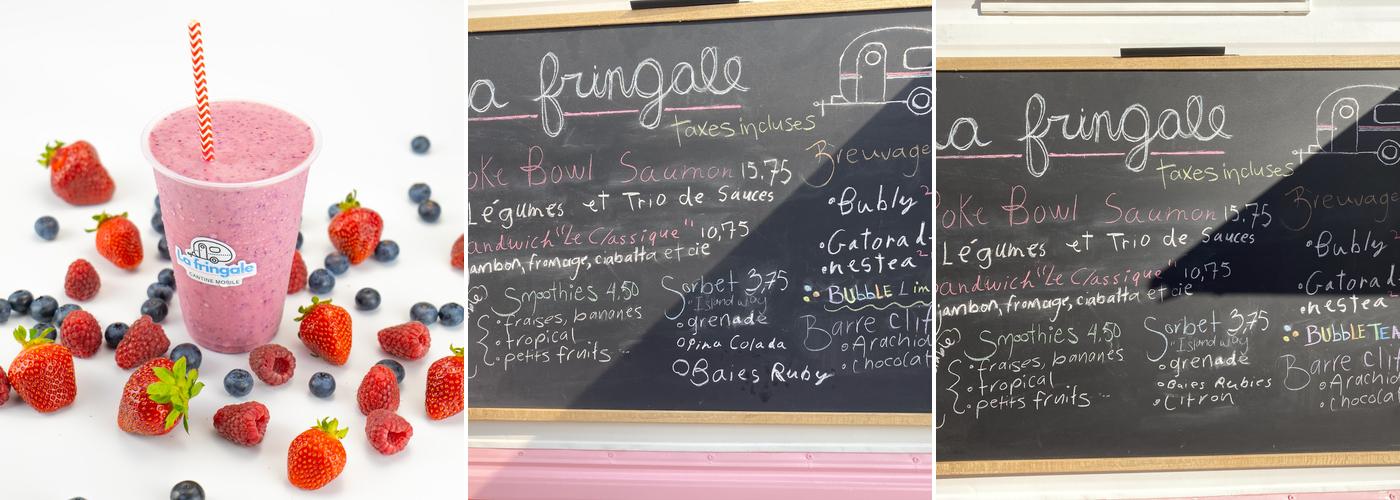 La fringale
CANTINE MOBILE
a fringale
taxes incluses
oke Bowl Saumon 15,75
Légumes et Trio de Sauces
andwich "Le Classique" 10,75
ambon, fromage, ciabatta et cie
Smoothies 4.50
• fraises, bananes
• tropical
• petits fruits
Sorbet 3,75
• Island way
• grenade
o Pina Colada
o Baies Ruby
Breuvage
• Bubly 2
• Gatorad
• nestea 2
BUBBLE Lim
Barre Clif
• Arachid
• chocolat
a fringale
taxes incluses
oke Bowl Saumon 15,75
Légumes et Trio de Sauces
andwich "Le Classique" 10,75
jambon, fromage, ciabatta et cie
Smoothies 4,50
• fraises, bananes
• tropical
• petits fruits
Sorbet 3,75
• Island way
• grenade
• Baies Rubies
• Citron
Breuvage
• Bubly 2
• Gatorad
• nestea
• BUBBLE TEA
Barre Clif
• Arachid
• chocolat